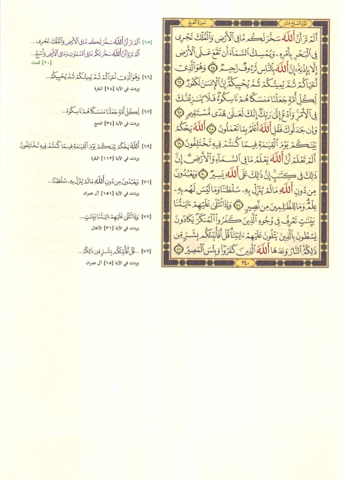 أَلَمْ تَرَ أَنَّ اللَّهَ سَخَّرَ لَكُم مَّا فِي الْأَرْضِ وَالْفُلْكَ تَجْرِي
فِي الْبَحْرِ بِأَمْرِهِ وَيُمْسِكُ السَّمَاءَ أَن تَقَعَ عَلَى الْأَرْضِ
إِلَّا بِإِذْنِهِ إِنَّ اللَّهَ بِالنَّاسِ لَرَءُوفٌ رَّحِيمٌ ٦٥ وَهُوَ الَّذِي
أَحْيَاكُمْ ثُمَّ يُمِيتُكُمْ ثُمَّ يُحْيِيكُمْ إِنَّ الْإِنسَانَ لَكَفُورٌ ٦٦
لِّكُلِّ أُمَّةٍ جَعَلْنَا مَنسَكًا هُمْ نَاسِكُوهُ فَلَا يُنَازِعُنَّكَ
فِي الْأَمْرِ وَادْعُ إِلَىٰ رَبِّكَ إِنَّكَ لَعَلَىٰ هُدًى مُّسْتَقِيمٍ ٦٧
وَإِن جَادَلُوكَ فَقُلِ اللَّهُ أَعْلَمُ بِمَا تَعْمَلُونَ ٦٨ اللَّهُ يَحْكُمُ
بَيْنَكُمْ يَوْمَ الْقِيَامَةِ فِيمَا كُنتُمْ فِيهِ تَخْتَلِفُونَ ٦٩
أَلَمْ تَعْلَمْ أَنَّ اللَّهَ يَعْلَمُ مَا فِي السَّمَاءِ وَالْأَرْضِ إِنَّ
ذَٰلِكَ فِي كِتَابٍ إِنَّ ذَٰلِكَ عَلَى اللَّهِ يَسِيرٌ ٧٠ وَيَعْبُدُونَ
مِن دُونِ اللَّهِ مَا لَمْ يُنَزِّلْ بِهِ سُلْطَانًا وَمَا لَيْسَ لَهُم بِهِ
عِلْمٌ وَمَا لِلظَّالِمِينَ مِن نَّصِيرٍ ٧١ وَإِذَا تُتْلَىٰ عَلَيْهِمْ آيَاتُنَا
بَيِّنَاتٍ تَعْرِفُ فِي وُجُوهِ الَّذِينَ كَفَرُوا الْمُنكَرَ يَكَادُونَ
يَسْطُونَ بِالَّذِينَ يَتْلُونَ عَلَيْهِمْ آيَاتِنَا قُلْ أَفَأُنَبِّئُكُم بِشَرٍّ مِّن
ذَٰلِكُمُ النَّارُ وَعَدَهَا اللَّهُ الَّذِينَ كَفَرُوا وَبِئْسَ الْمَصِيرُ ٧٢
٣٤٠
[٦٥] أَلَمْ تَرَ أَنَّ اللَّهَ سَخَّرَ لَكُم مَّا فِي الْأَرْضِ وَالْفُلْكَ تَجْرِي ...
أَلَمْ تَرَوْا أَنَّ اللَّهَ سَخَّرَ لَكُم مَّا فِي السَّمَاوَاتِ وَمَا فِي الْأَرْضِ وَأَسْبَغَ ...
[٢٠] لقمان
[٦٦] وَهُوَ الَّذِي أَحْيَاكُمْ ثُمَّ يُمِيتُكُمْ ثُمَّ يُحْيِيكُمْ ...
وردت في الآية [٢٨] البقرة
[٦٧] لِكُلِّ أُمَّةٍ جَعَلْنَا مَنسَكًا هُمْ نَاسِكُوهُ ...
وردت في الآية [٣٤] الحج
[٦٩] اللَّهُ يَحْكُمُ بَيْنَكُمْ يَوْمَ الْقِيَامَةِ فِيمَا كُنتُمْ فِيهِ تَخْتَلِفُونَ
وردت في الآية [١١٣] البقرة
[٧١] وَيَعْبُدُونَ مِن دُونِ اللَّهِ مَا لَمْ يُنَزِّلْ بِهِ سُلْطَانًا ...
وردت في الآية [١٥١] آل عمران
[٧٢] وَإِذَا تُتْلَىٰ عَلَيْهِمْ آيَاتُنَا بَيِّنَاتٍ ...
وردت في الآية [٣١] الأنفال
[٧٢] ... قُلْ أَفَأُنَبِّئُكُم بِشَرٍّ مِّن ذَٰلِكُمُ ...
وردت في الآية [١٥] آل عمران